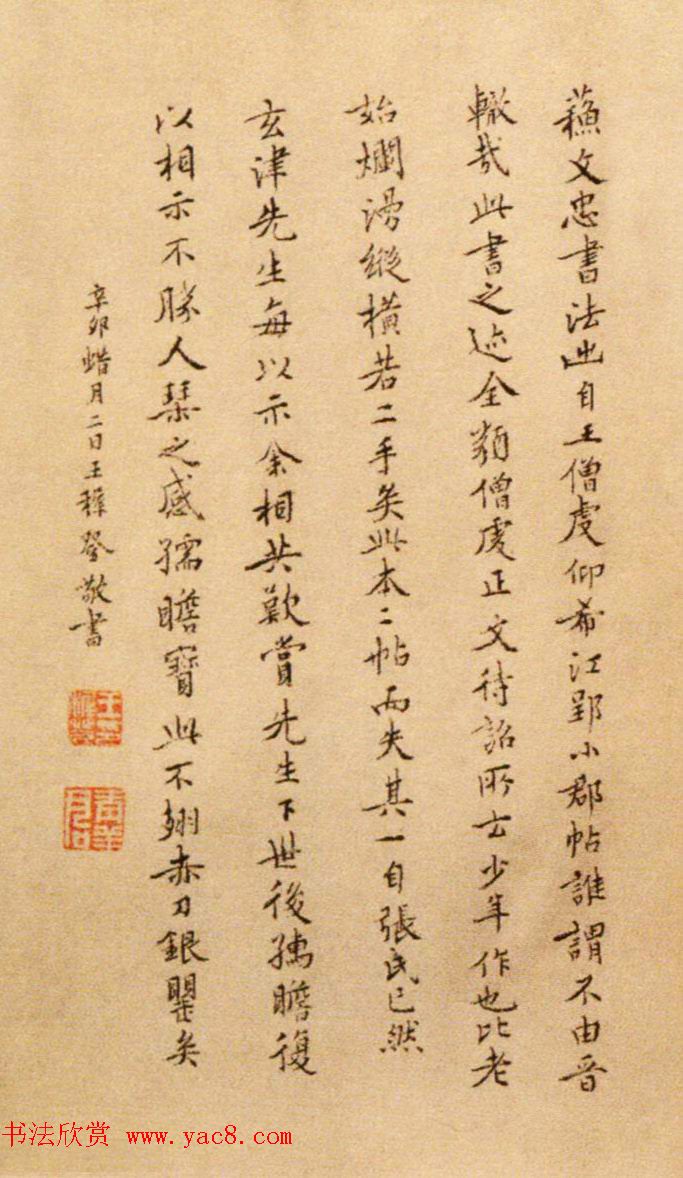 蘓文忠書法迆自王僧虔仰希江郢小郡帖誰謂不由晉
轍哉此書之迹全類僧虔正文待詔所云少年作也比老
始爛漫縱橫若二手矣此本二帖而失其一自張氏已然
玄津先生每以示余相共歎賞先生下世後孺瞻復
以相示不勝人琹之感孺瞻寶此不翅赤刀銀瞿矣
辛卯蜡月二日王穉登敬書
书法欣赏 www.yac8.com